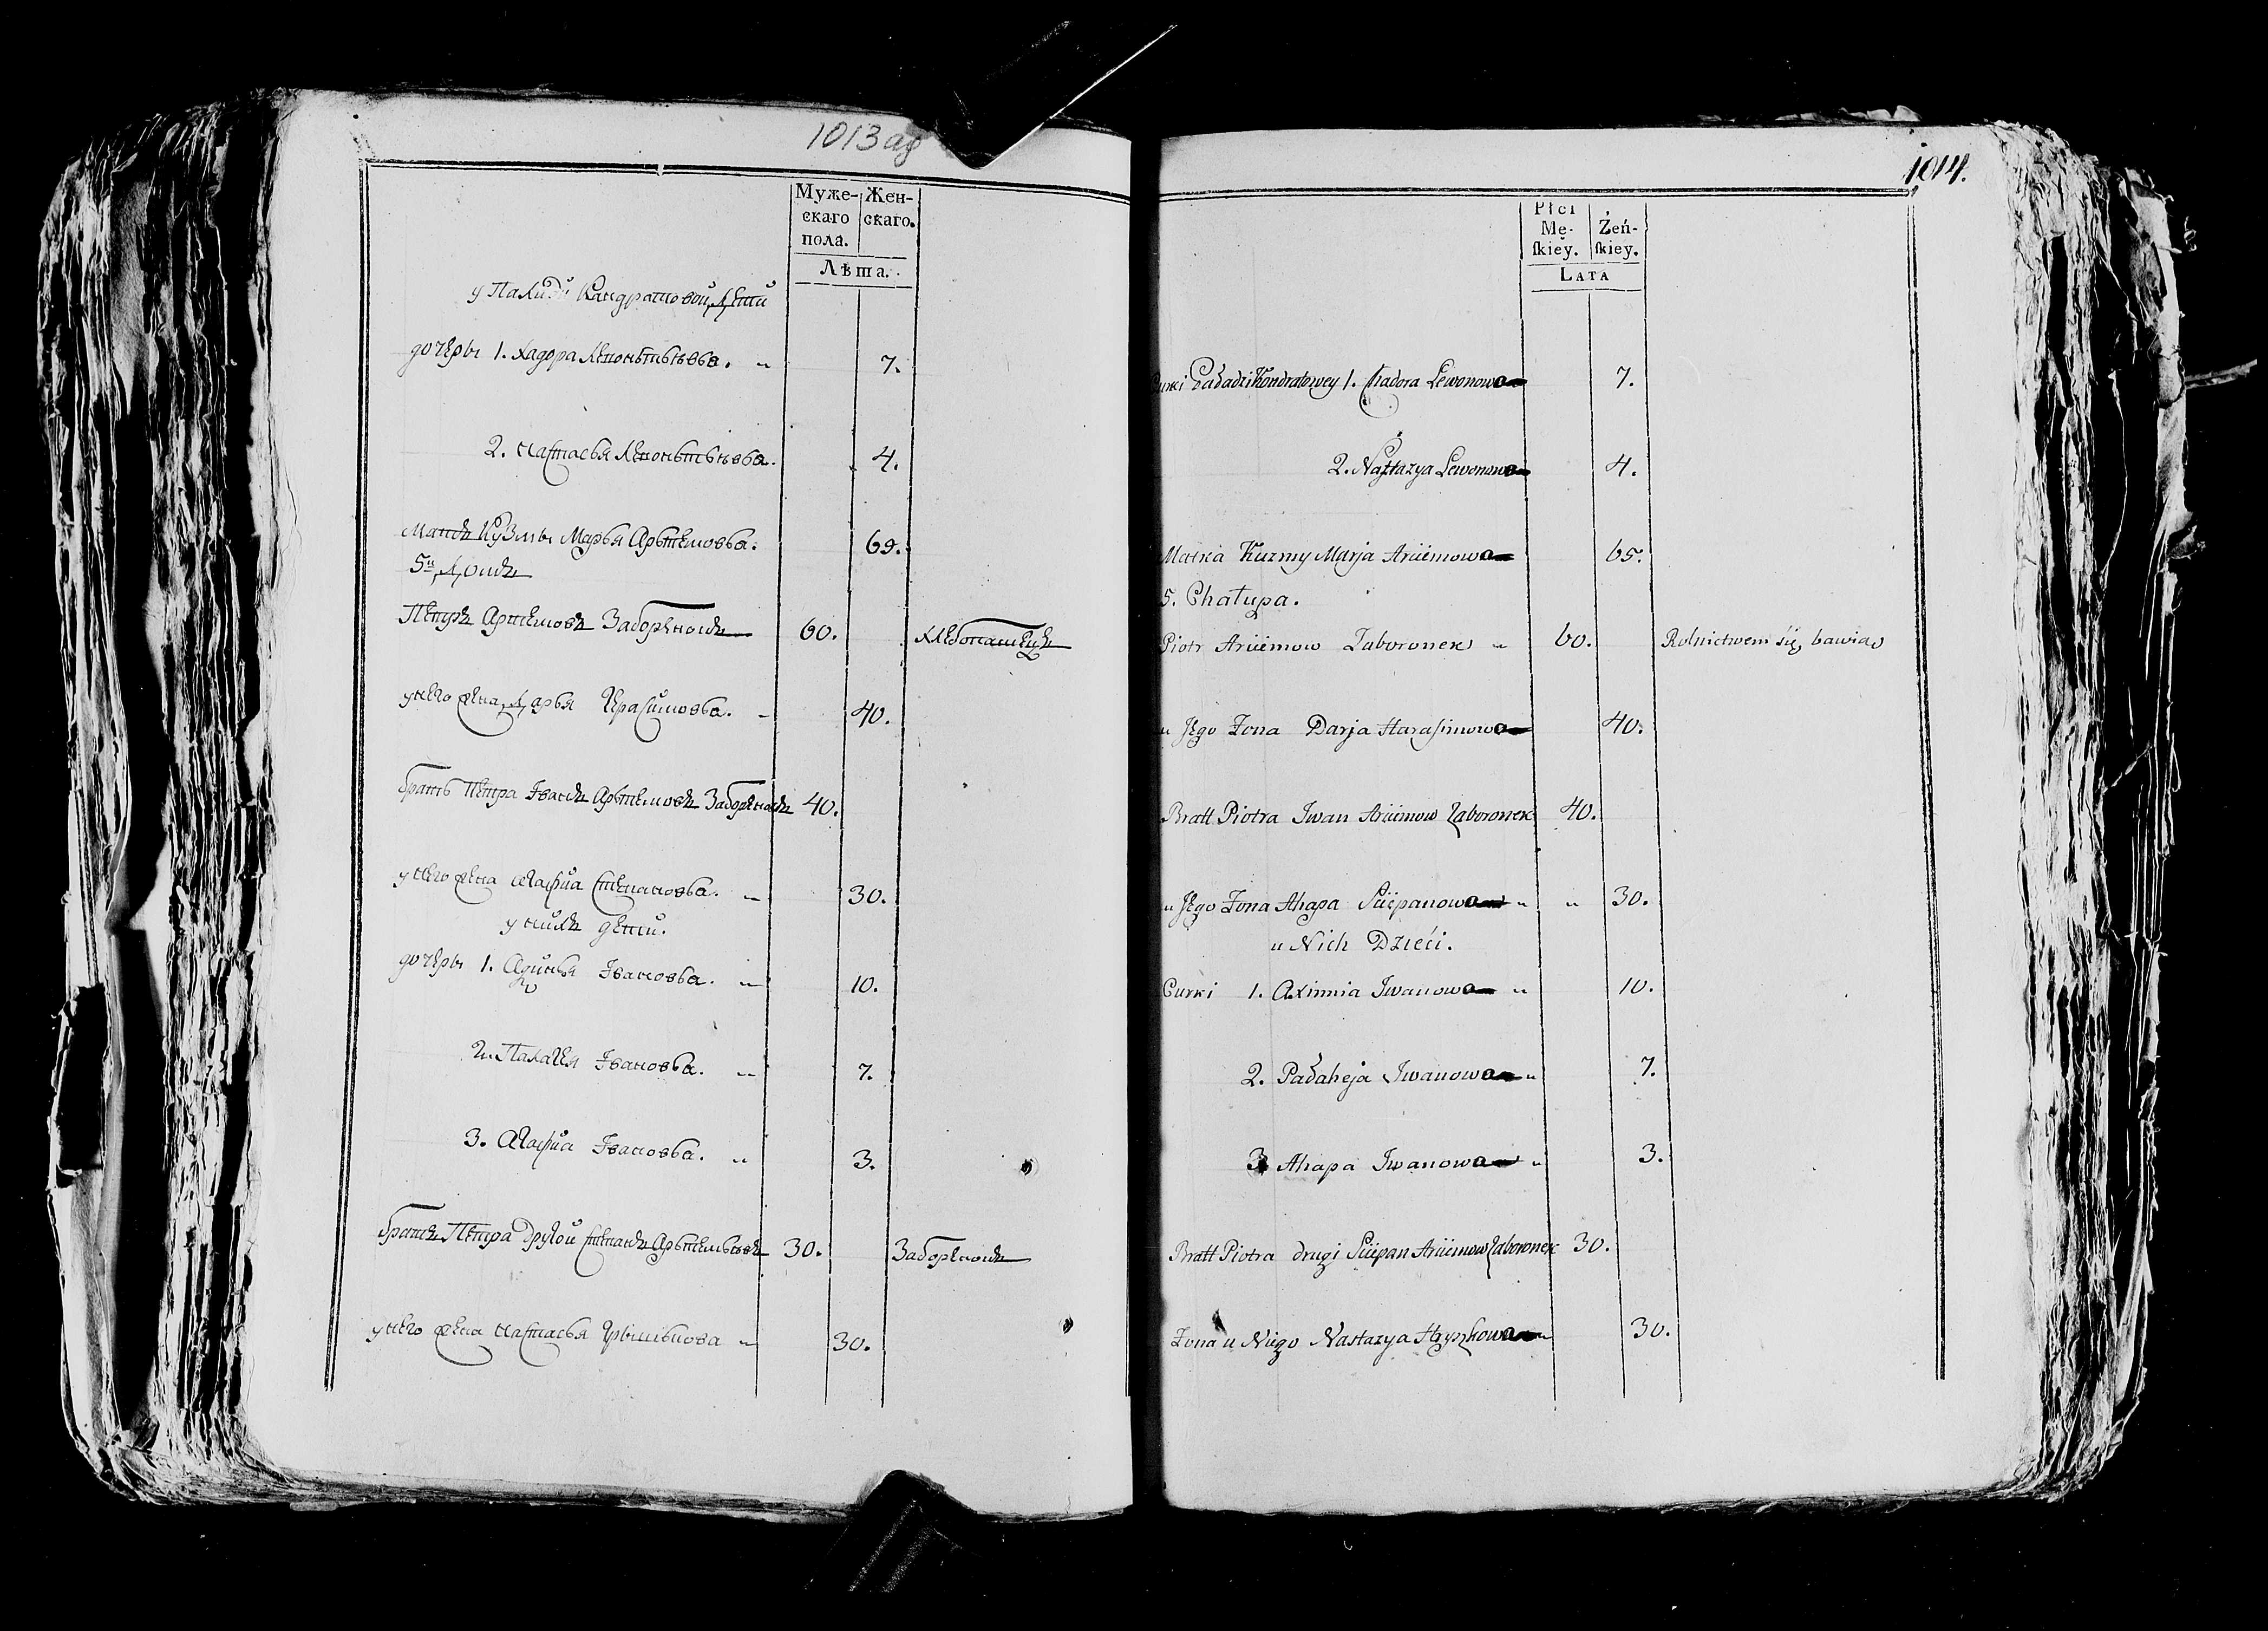 1013 аф
Муже-
скаго
пола.
Жен-
скаго.
Лѣта.
у Палиди Кандратовой дѣти
дочеры 1. Хадора Леонътьѣва. „ 7.
2. Настасья Леонътьѣва. 4.
Матъ Кузмы Марья Арътемовъа. 65.
5й Домъ
Петръ Артемовъ Заборенокъ 60. Хлебопашецъ
у него жена Дарья Герасимовъа. „ 40.
братъ Петра Iванъ Арътемовъ Заборенокъ 40.
у него жена Агафиа Степановъа. „ 30.
у нихъ дети.
дочеры 1. Аѯинья Iвановъа. „ 10.
2. Палагея Iвановъа. „ 7.
3. Агафиа Iвановъа. „ 3.
братъ Петра другой Степанъ Арътемьевъ 30. Заборенокъ
у него жена Настасья Грышъкова „ 30.
1014.
Płci
Mę-
skiey.
Żeń-
skiey.
LATA
Curki Paładzi Kondratowey 1. Chadora Lewonowa 7.
2. Nastazya Lewonowa 4.
Matka Kuzmy Marja Arciemowa 65.
5. Chałupa.
Piotr Arciemow Zaboronek „ 60. Rolnictwem się bawią
u Jego Żona Darja Harasimowa 40.
Bratt Piotra Iwan Arciemow Zaboronek 40.
u Jego Żona Ahapa Sciepanowa „ „ 30.
u Nich Dzieci.
Curki 1. Axinnia Iwanowa „ 10.
2. Pałaheja Iwanowa „ 7.
3. Ahapa Iwanowa „ 3.
Bratt Piotra drugi Sciepan Arciemow Zaboronek 30.
Żona u Niego Nastazya Hryszkowa „ 30.